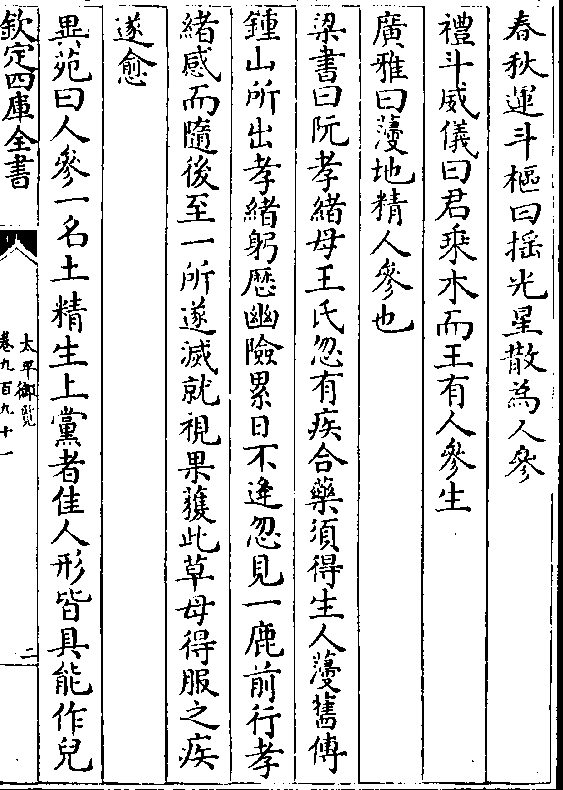 春秋運斗樞曰揺光星散為人參
禮斗威儀曰君乘木而王有人參生
廣雅曰葠地精人參也
梁書曰阮孝緒母王氏忽有疾合藥須得生人葠舊傳
鍾山所出孝緒躬歴幽險累日不逢忽見一鹿前行孝
緒感而隨後至一所遂滅就視果獲此草母得服之疾
遂愈
異苑曰人參一名土精生上黨者佳人形皆具能作兒
欽定四庫全書
太平御覽
卷九百九十一
二